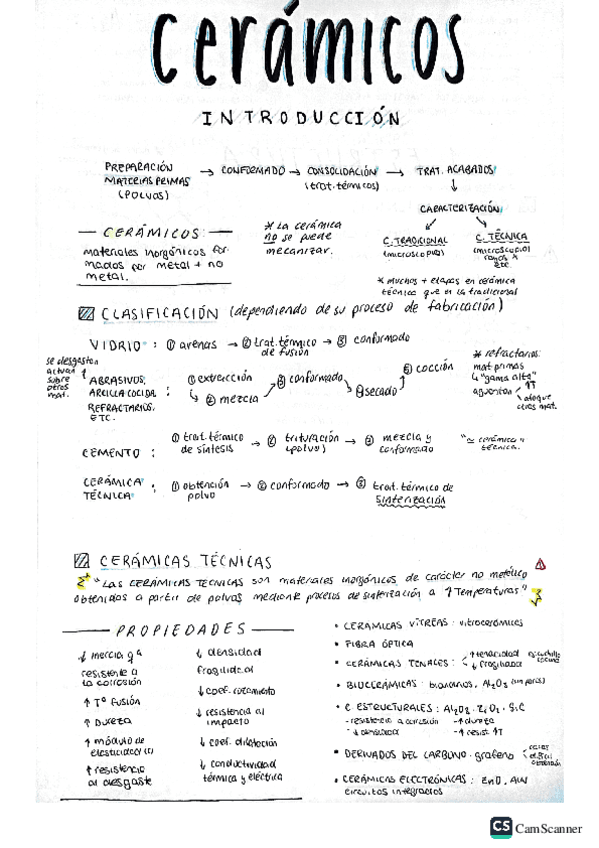 Cerámicos
INTRODUCCIÓN
PREPARACIÓN MATERIAS PRIMAS (POLVOS) → CONFORMADO → CONSOLIDACIÓN (trat. térmicos) → TRAT. ACABADOS
↓
CARACTERIZACIÓN
C. TRADICIONAL (microscopia)
C. TÉCNICA (microscopio rayos X etc.
* Muchas + etapas en cerámica
técnica que en la tradicional
CERÁMICOS
materiales inorgánicos for
mados por metal + no
metal.
* La cerámica
no se puede
mecanizar.
CLASIFICACIÓN (dependiendo de su proceso de fabricación)
VIDRIO: ① arenas → ② trat. térmico de fusión → ③ conformado
se desgastan
actúan
sobre
otros
mat.
ABRASIVOS,
ARCILLA COCIDA,
REFRACTARIOS,
ETC.
: ① extracción
② mezcla
③ conformado
④ secado
⑤ cocción
* refractarios:
mat. primas
"gama alta"
aguantan ↑T
ataque
otros mat.
CEMENTO: ① trat. térmico de síntesis → ② trituración (polvo) → ③ mezcla y conformado
"≈ cerámica
técnica.
CERÁMICA TÉCNICA: ① obtención polvo → ② conformado → ③ trat. térmico de sinterización
CERÁMICAS TÉCNICAS
"Las CERÁMICAS TECNICAS son materiales inorgánicos de carácter no metálico
obtenidos a partir de polvos mediante procesos de sinterización a ↑ Temperaturas"
PROPIEDADES
↓ inercia qª
resistente a
la corrosión
↑ Tº fusión
↑ Dureza
↑ módulo de
elasticidad
↑ resistencia
al desgaste
↓ densidad
fragilidad
↓ coef. rozamiento
↓ resistencia al
impacto
↓ coef. dilatación
↓ conductividad
térmica y eléctrica
• CERAMICAS VITREAS: vitrocerámicas
• FIBRA ÓPTICA
• CERÁMICAS TENACES: ↑ tenacidad
↓ fragilidad
cuchillo
cocina
• BIOCERÁMICAS: Al2O3
• C ESTRUCTURALES: Al2O3 · ZrO2 · SiC
- resistencia a corrosión - ↑ dureza
- ↓ densidad - ↑ resist ↑T
• DERIVADOS DEL CARBONO: grafeno
• CERÁMICAS ELECTRÓNICAS: ZnO, AlN
circuitos integrados
CS CamScanner